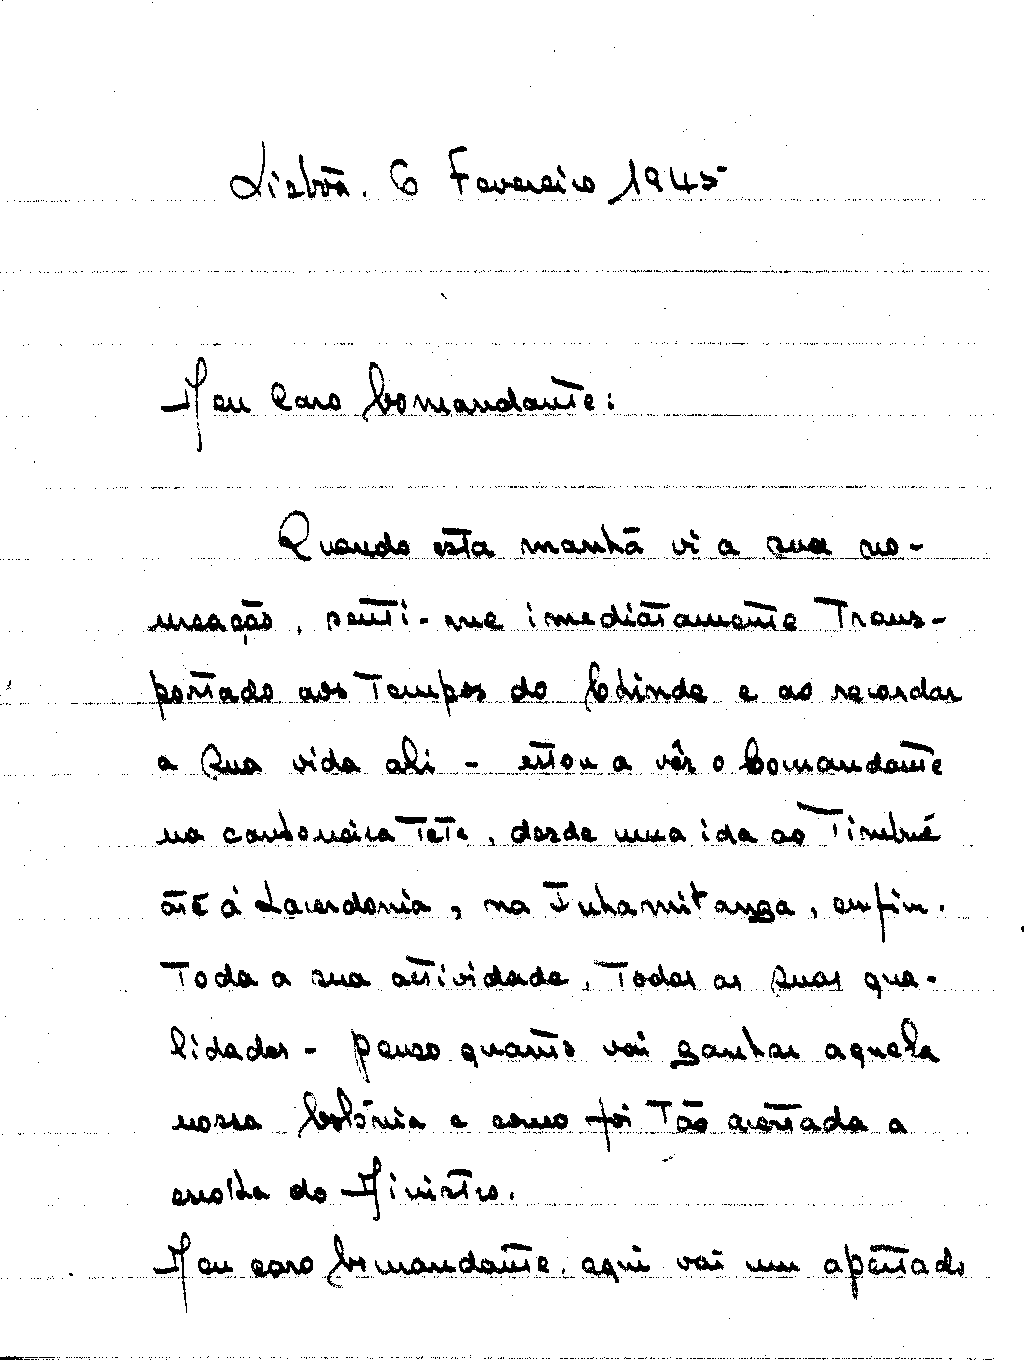 Lisbôa. 6 Fevereiro 1945
Meu caro Comandante:
Quando esta manhã vi a sua no-
meação, senti-me imediatamente trans-
portado aos tempos do Chinde e ao recordar
a sua vida ali - estou a vêr o Comandante
na canhoneira Tete, desde uma ida ao Timbué
até á Lacerdonia, na Inhamitanga, enfim.
Toda a sua actividade, todas as suas qua-
lidades - penso quanto vai ganhar aquela
nossa Colónia e como foi tão acertada a
escolha do Ministro.
Meu caro Comandante. aqui vai um apertado